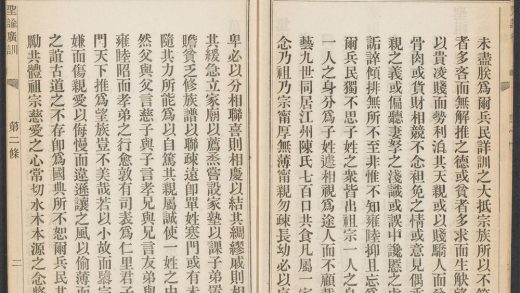 未盡朕爲爾兵民詳訓之大抵宗族所以不
者多吝而無解推之德或貧者多求而生觖
以貴凌賤而勢利汨其天親或以賤驕人而
骨肉或貨財相競不念袒免之情或意見偶
親之義或偏聽妻孥之淺識或誤中讒慝之
詬誶傾排無所不至非惟不知雍睦抑且忘
爾兵民獨不思子姓之衆皆出祖宗一人之
一人之身分爲子姓遽相視爲途人而不顧
藝九世同居江州陳氏七百口共食凡屬一
念乃祖乃宗寧厚無薄寧親勿疎長幼必以
卑必以分相聯喜則相慶以結其綢繆戚則相
其緩急立家廟以薦烝嘗設家塾以課子弟置
贍貧乏修族譜以聯疎遠卽單姓寒門或有
隨其力所能爲以自篤其親屬誠使一姓之中
然父與父言慈子與子言孝兄與兄言友弟與
雍睦昭而孝弟之行愈敦有司表爲仁里君子
門天下推爲望族豈不美哉若以小故而隳宗
嫌而傷親愛以侮慢而違遜讓之風以偷薄而
之誼古道之不存卽爲國典所不恕爾兵民其
勵共體祖宗慈愛之心常切水木本源之念將
聖諭廣訓
第二條
二